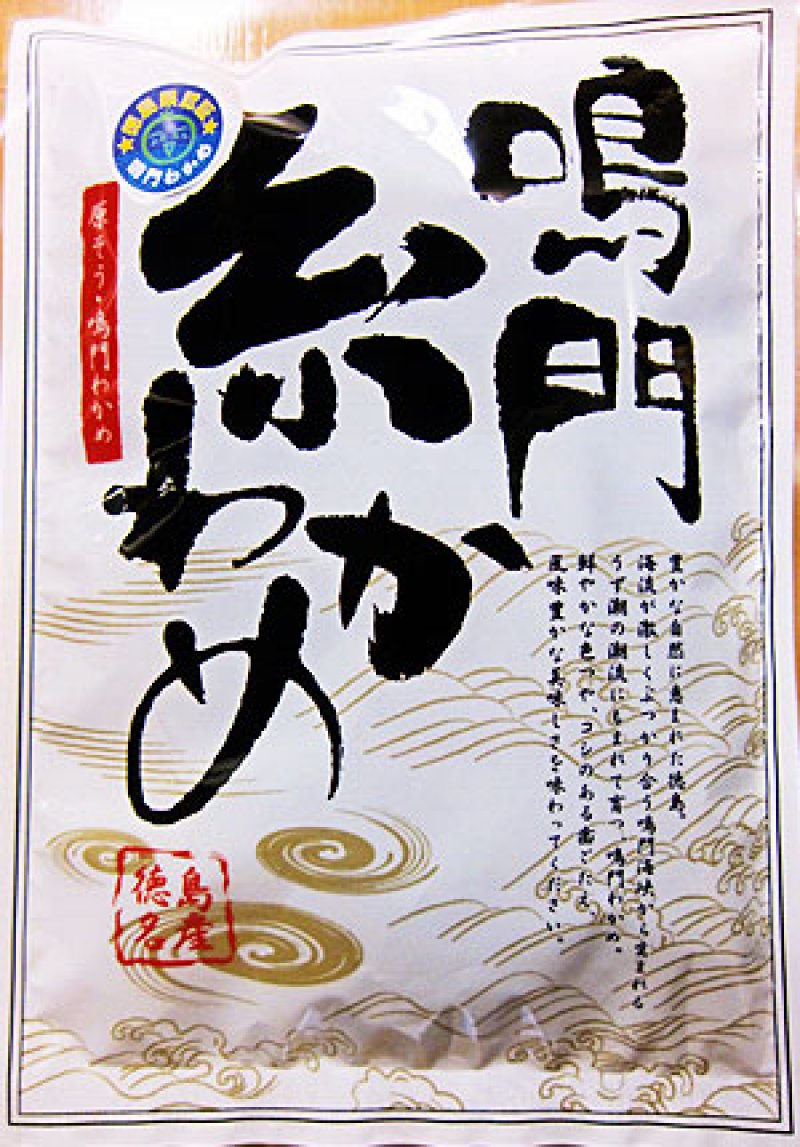 鳴門
糸わかめ
徳島県認証
鳴門わかめ
原そう・鳴門わかめ
豊かな自然に恵まれた徳島。
海流が激しくぶつかり合う鳴門海峡から生まれる
うず潮の潮流にもまれて育つ、鳴門わかめ。
鮮やかな色つや、コシのある歯ごたえ、
風味豊かな美味しさを味わってください。
徳島
名産